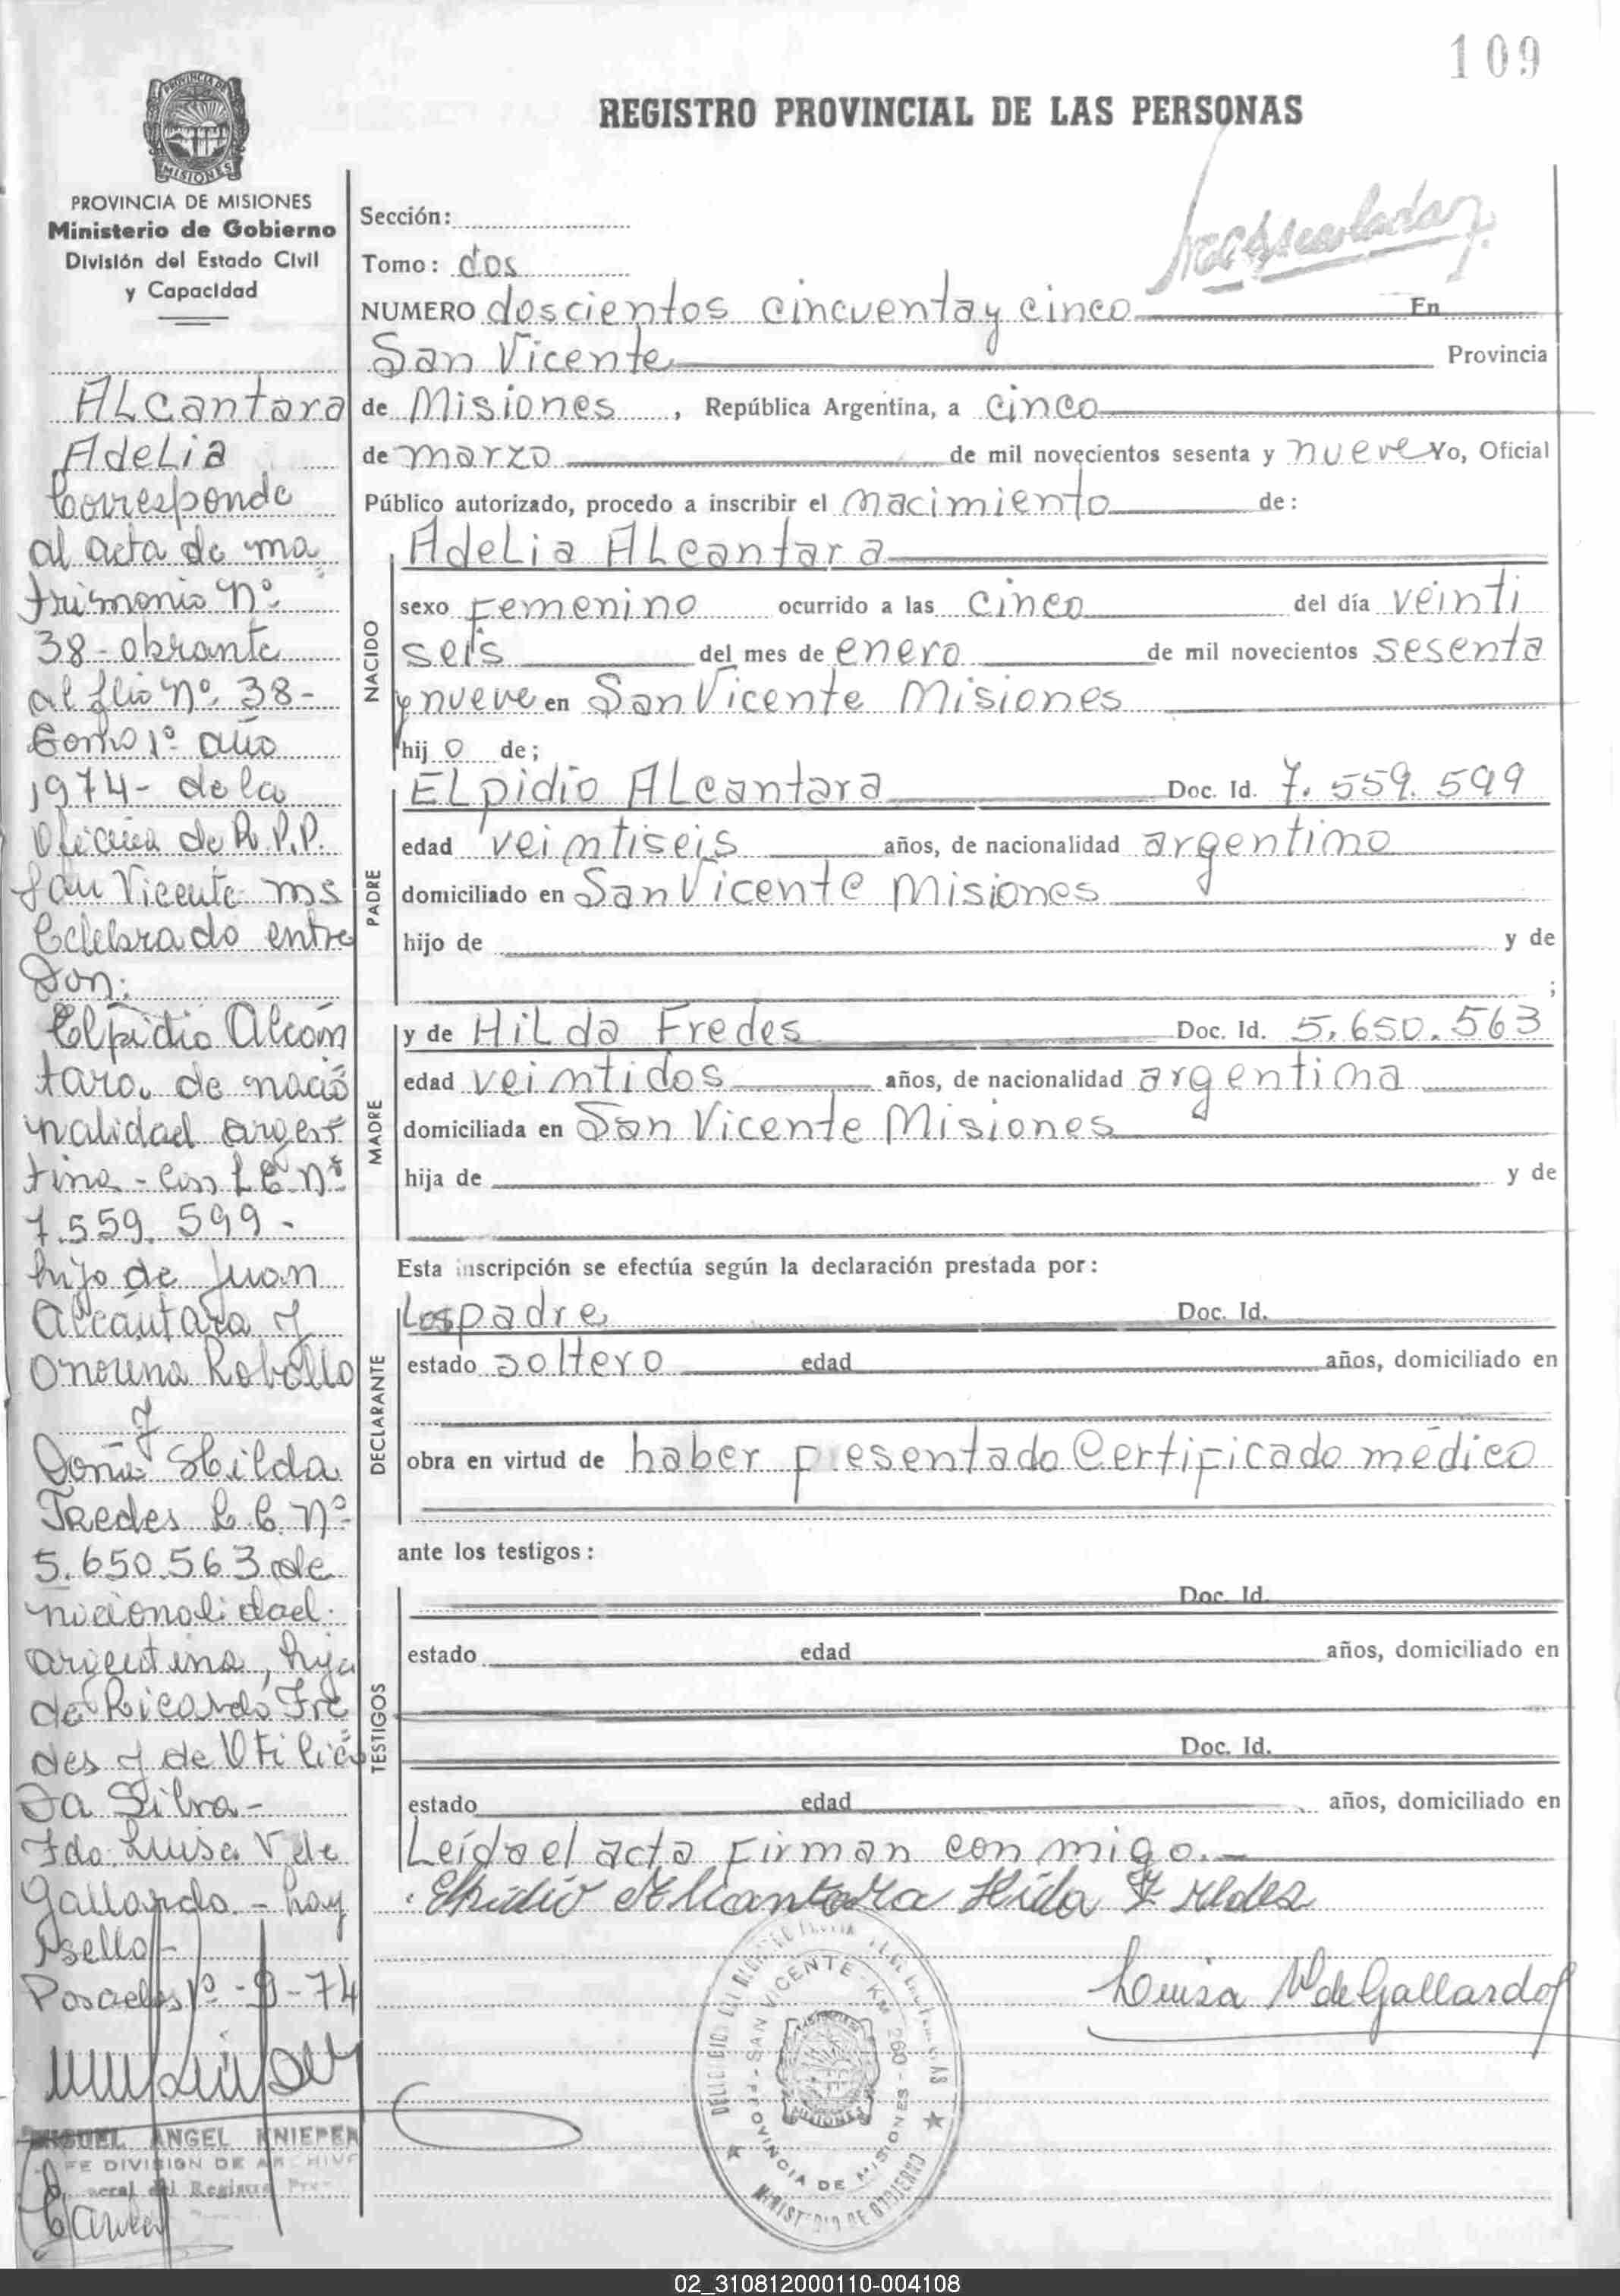 109
REGISTRO PROVINCIAL DE LAS PERSONAS
PROVINCIA DE MISIONES
Ministerio de Gobierno
División del Estado Civil
y Capacidad
ALcantara
Adelia
Corresponde
al acta de ma
trimonio Nº
38 - obrante
al flio Nº 38 -
Tomo 1º año
1974 - de la
Oficina de R.P.P.
San Vicente ms
Celebrado entre
Don:
Elpidio Alcán
tara, de nacio
nalidad argen
tina - con L E Nº
7.559.599 -
hijo de Juan
Alcántara y
Robello
y
Doña Hilda
Fredes L. C. Nº
5.650.563 de
nacionalidad
argentina, hija
de Ricardo Fre
des y de Otilia
Da Silva -
Fdo. Luisa V de
Gallardo. - hay
sello -
Posadas 1º - 9 - 74
MIGUEL ANGEL KNIEPER
DIVISION DE ARCHIVO
Sección:
Tomo: dos
NUMERO doscientos cincuenta y cinco En
San Vicente Provincia
de Misiones, República Argentina, a cinco
de marzo de mil novecientos sesenta y nueve Yo, Oficial
Público autorizado, procedo a inscribir el nacimiento de:
Adelia ALcantara
NACIDO
sexo Femenino ocurrido a las cinco del día veinti
seis del mes de enero de mil novecientos sesenta
y nueve en San Vicente Misiones
hijo de;
PADRE
ELpidio ALcantara Doc. Id. 7.559.599
edad veintiseis años, de nacionalidad argentino
domiciliado en San Vicente Misiones
hijo de y de
;
MADRE
y de HiLda Fredes Doc. Id. 5.650.563
edad veintidos años, de nacionalidad argentina
domiciliada en San Vicente Misiones
hija de y de
Esta inscripción se efectúa según la declaración prestada por:
DECLARANTE
Los padre Doc. Id.
estado soltero edad años, domiciliado en
obra en virtud de haber presentado Certificado médico
ante los testigos:
TESTIGOS
Doc. Id.
estado edad años, domiciliado en
Doc. Id.
estado edad años, domiciliado en
Leída el acta Firman conmigo.-
Elpidio Alcantara Hilda Fredes
Luisa V de Gallardo
SAN VICENTE - KM 260 -
PROVINCIA DE MISIONES
MINISTERIO DE GOBIERNO
02_310812000110-004108